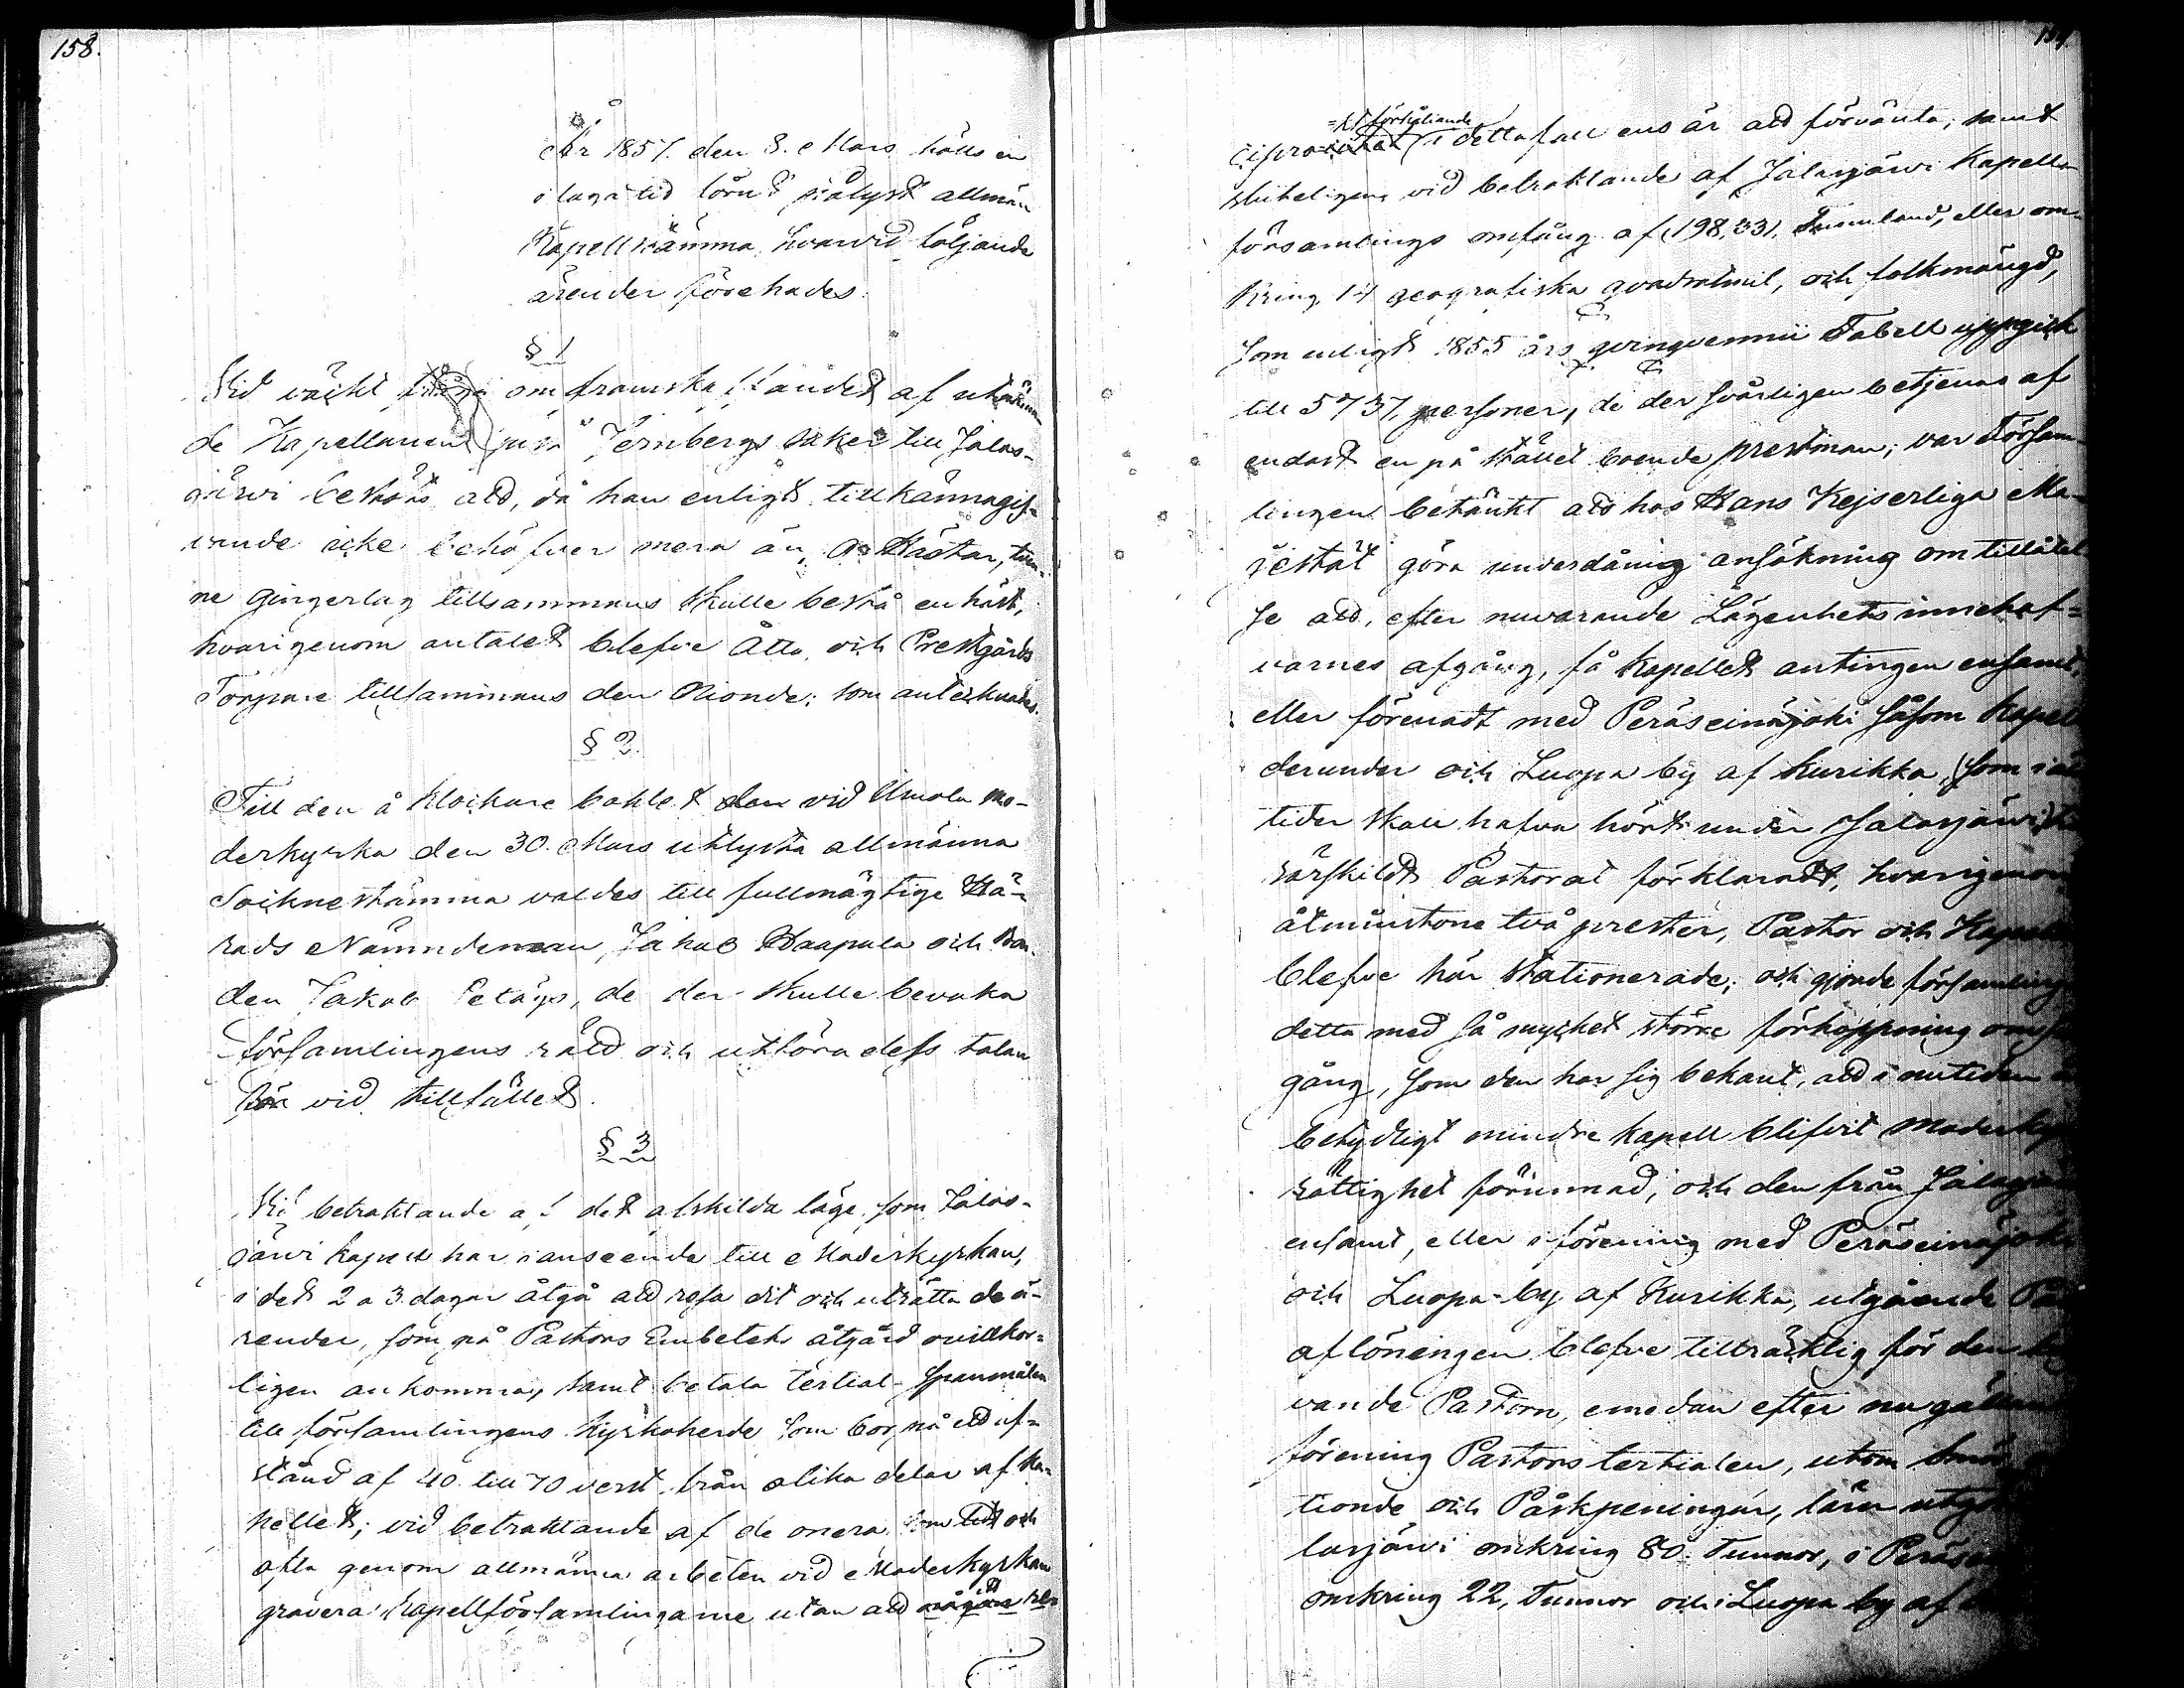 158.
År 1857. den 8. Mars hölls en
i laga tid förut pålyst allmän
Kapellstämma, hvarvid följande
ärender förehades.
§ 1
Vid väckt fråga om framskaffandet af utnämn
de Kapellanen Jernbergs saker till Jalas-
järvi besköts att, då han enligt tillkännagif-
vande icke behöfver mera än 9 Hästar, tven-
ne gingerlag tillsammans skulle bestå en häst,
hvarigenom antalet blefve Åtta, och Prestgårds
Torpare tillsammans den Nionde; som antecknades.
§ 2.
Till den å klockare bohlet den vid Ilmola mo-
derkyrka den 30. Mars utlysta allmänna
Sockne stämma valdes till fullmägtige Hä-
rads Nämndeman, Jakob Haapala och Bon-
den Jakob Petäys, de der skulle bevaka
församlingens rätt och utföra dess talan
vid tillfället.
§ 3
Vid betraktande af det afskilda läge som Jalas-
järvi kapell har i anseende till Moderkyrkan,
i det 2 a 3 dagar åtgå att resa dit och uträtta de ä-
render, som på Pastors Embetets åtgärd ovillkor-
ligen ankomma, samt betala tertial-spanmålen
till församlingens Kyrkoherde som bor på ett af-
stånd af 40 till 70 verst från olika delar af Ka-
pellet; vid betraktande af de onera som tidt och
ofta genom allmänna arbeten vid Moderkyrkan
gravera Kapellförsamlingarne utan att någon re-
159.
ciprocitet i detta fall ens är att förvänta; samt
sluteligen vid betraktande af Jalasjärvi Kapell-
församlings omfång af (198,33), Tunnland, eller om-
kring 14 geografiska qvadratmil, och folkmängd,
som enligt 1855 års qvinqvennii Tabell uppgick
till 5737, personer, de der svårligen betjenas af
endast en på stället boende prestman; var Försam-
lingen betänkt att hos Hans Kejserliga Ma-
jestät göra underdånig ansökning om tillåtel
se att, efter nuvarande Lägenhets innehaf-
varnes afgång, få Kapellet antingen ensamt,
eller förenadt med Peräseinäjoki såsom Kapell
derunder och Luopa by af Kurikka, som i äl
tider skall hafva hört under Jalasjärvi,
särskildt Pastorat förklaradt, hvarigenom
åtminstone två prester, Pastor och Kapellan
blefve här stationerade; och gjorde församling
detta med så mycket större förhoppning om
gång, som den har sig bekant, att i nutiden
betydligt mindre kapell blifvit moderky
rättighet förunnad; och den från Jalasjär
ensamt, eller i förening med Peräseinäjoki
och Luopa by af Kurikka, utgående Pa
aflöningen blefve tillräcklig för den
vande Pastorn, emedan efter nu gällan
förening Pastors tertialen, utom smör
tionde och Påskpeningar, lärer utgö
lasjärvi omkring 80. Tunnor, i Peräse
omkring 22, Tunnor och i Luopa by af